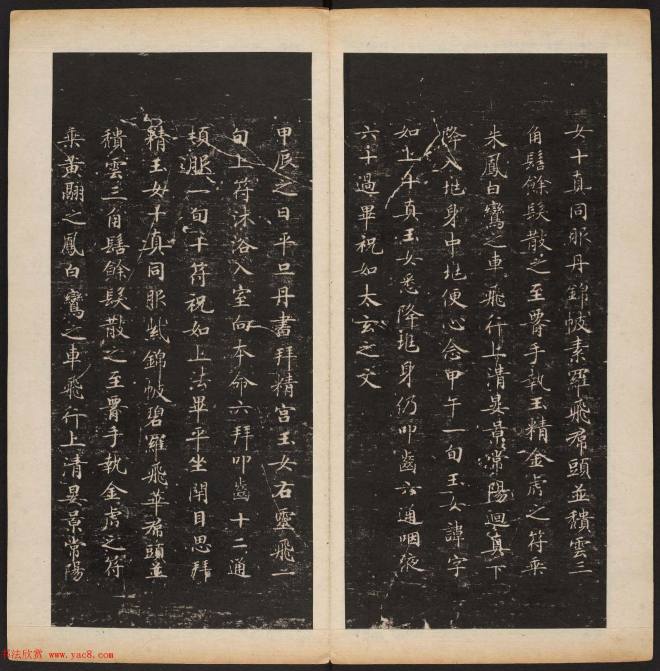 女十真同服丹錦帔素羅飛帬頭並穨雲三
角髻餘髮散之至臀手執玉精金虎之符乗
朱鳳白鸞之車飛行上清晏景常陽迴真下
降入兆身中兆便心念甲午一旬玉女諱字
如上十真玉女悉降兆身仍叩齒六通咽液
六十過畢祝如太玄之文
甲辰之日平旦丹書拜精宫玉女右靈飛一
旬上符沐浴入室向本命六拜叩齒十二通
頓服一旬十符祝如上法畢平坐閉目思拜
精玉女十真同服紫錦帔碧羅飛華帬頭並
穨雲三角髻餘髮散之至臀手執金虎之符
乗黃翮之鳳白鸞之車飛行上清晏景常陽
书法欣赏 www.yac8.com